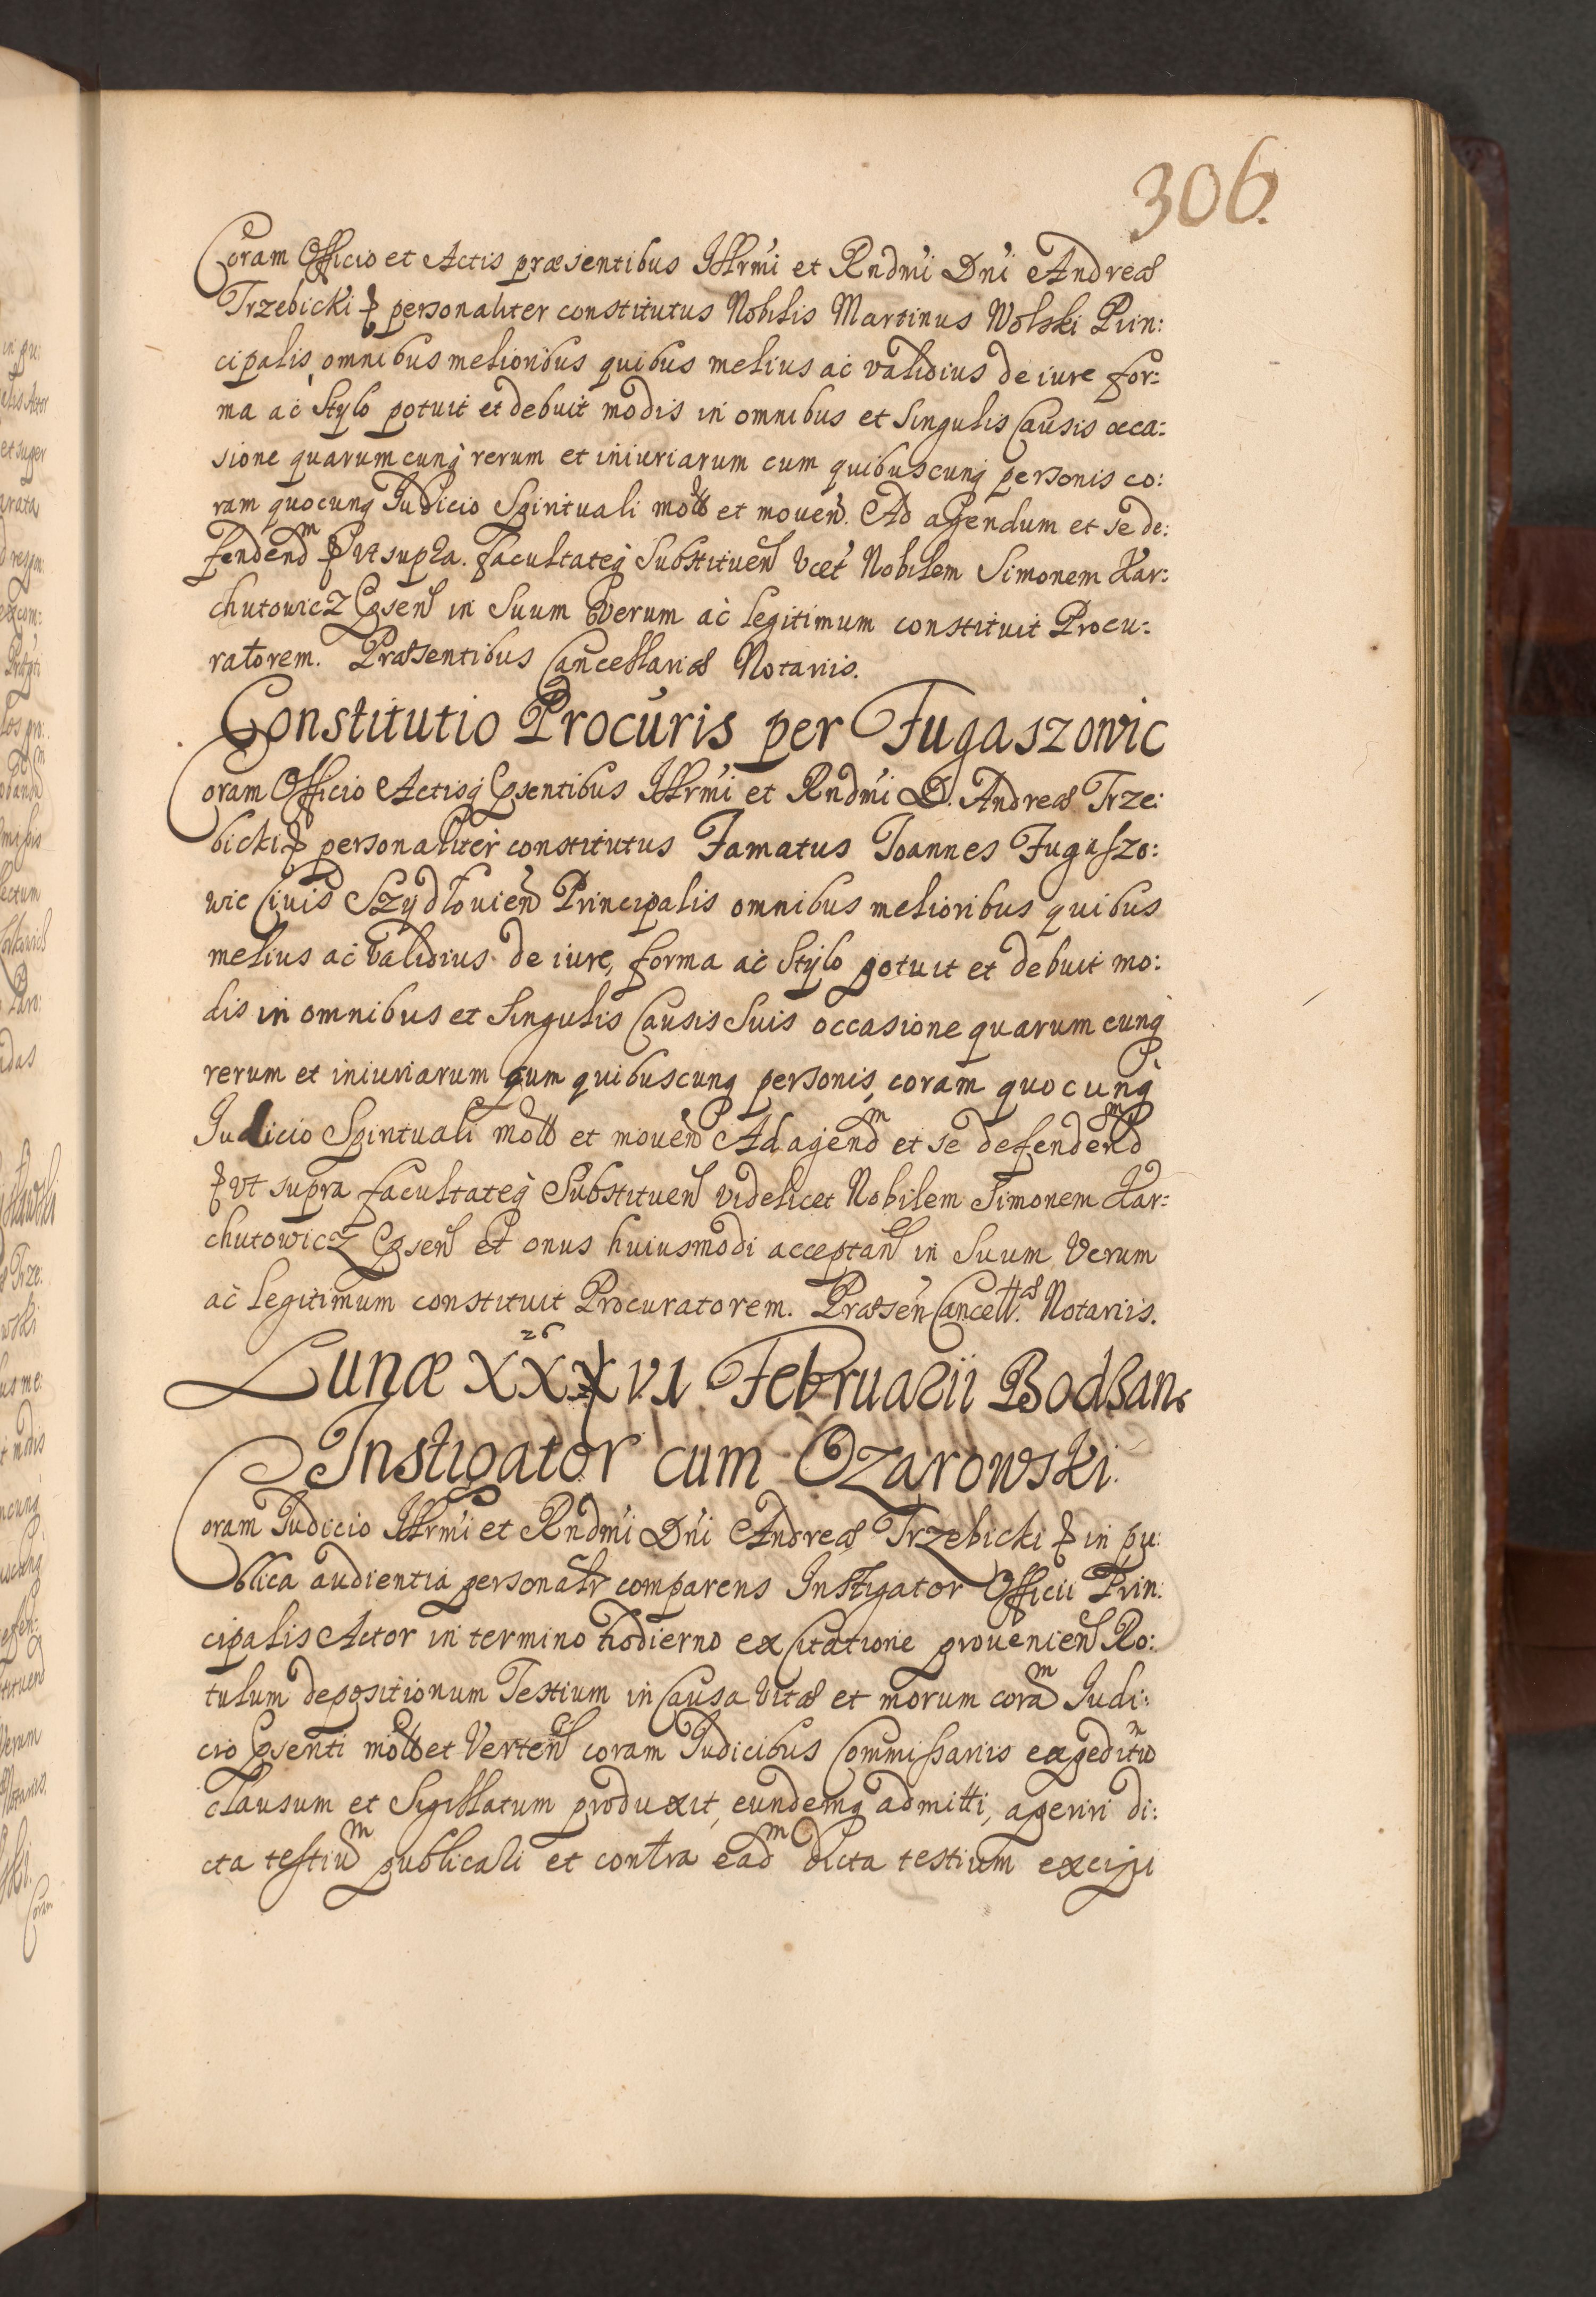 306.
Coram Officio et Actis præsentibus Illrmi et Rndmi Dni Andreæ
Trzebicki personaliter constitutus Nobilis Martinus Wolski Prin:
cipalis omnibus melioribus quibus melius ac validius de iure for:
ma ac Stylo potuit et debuit modis in omnibus et Singulis Causis occa:
sione quarumcunq rerum et iniuriarum cum quibuscunq personis co:
ram quocunq Judicio Spirituali mot et mouen. Ad agendum et se de:
fendendm ut supra. facultateq Substituen Vcet Nobilem Simonem Kar:
chutowicz Psen in Suum Verum ac legitimum constituit Procu:
ratorem. Præsentibus Cancellariæ Notariis.
Constitutio Procuris per Fugaszowic
Coram Officio Actisq Psentibus Illrmi et Rndmi D. Andreæ Trze:
bicki personaliter constitutus Famatus Joannes Fugaszo:
wic Civis Szydłovien Principalis omnibus melioribus quibus
melius ac validius de iure, forma ac Stylo potuit et debuit mo:
dis in omnibus et Singulis Causis Suis occasione quarumcunq
rerum et iniuriarum cum quibuscunq personis, coram quocunq
Judicio Spirituali mot et mouen Ad agendm et se defendendm
ut supra facultateq Substituen videlicet Nobilem Simonem Kar:
chutowicz Psen et onus huiusmodi acceptan in Suum Verum
ac legitimum constituit Procuratorem. Præsen Cancellæ Notariis.
26
Lunæ XXXVI Februarii Bodzan.
Instigator cum Ozarowski.
Coram Judicio Illrmi et Rndmi Dni Andreæ Trzebicki in pu:
blica audientia personalr comparens Instigator Officii Prin:
cipalis Actor in termino hodierno ex Citatione prouenien Ro:
tulum depositionum Testium in Causa Vitæ et morum coram Judi:
cio Psenti mot et Verten coram Judicibus Commissariis expeditm
clausum et Sigillatum produxit, eundemq admitti, aperiri di:
cta testium publicari et contra eadm dicta testium excipi